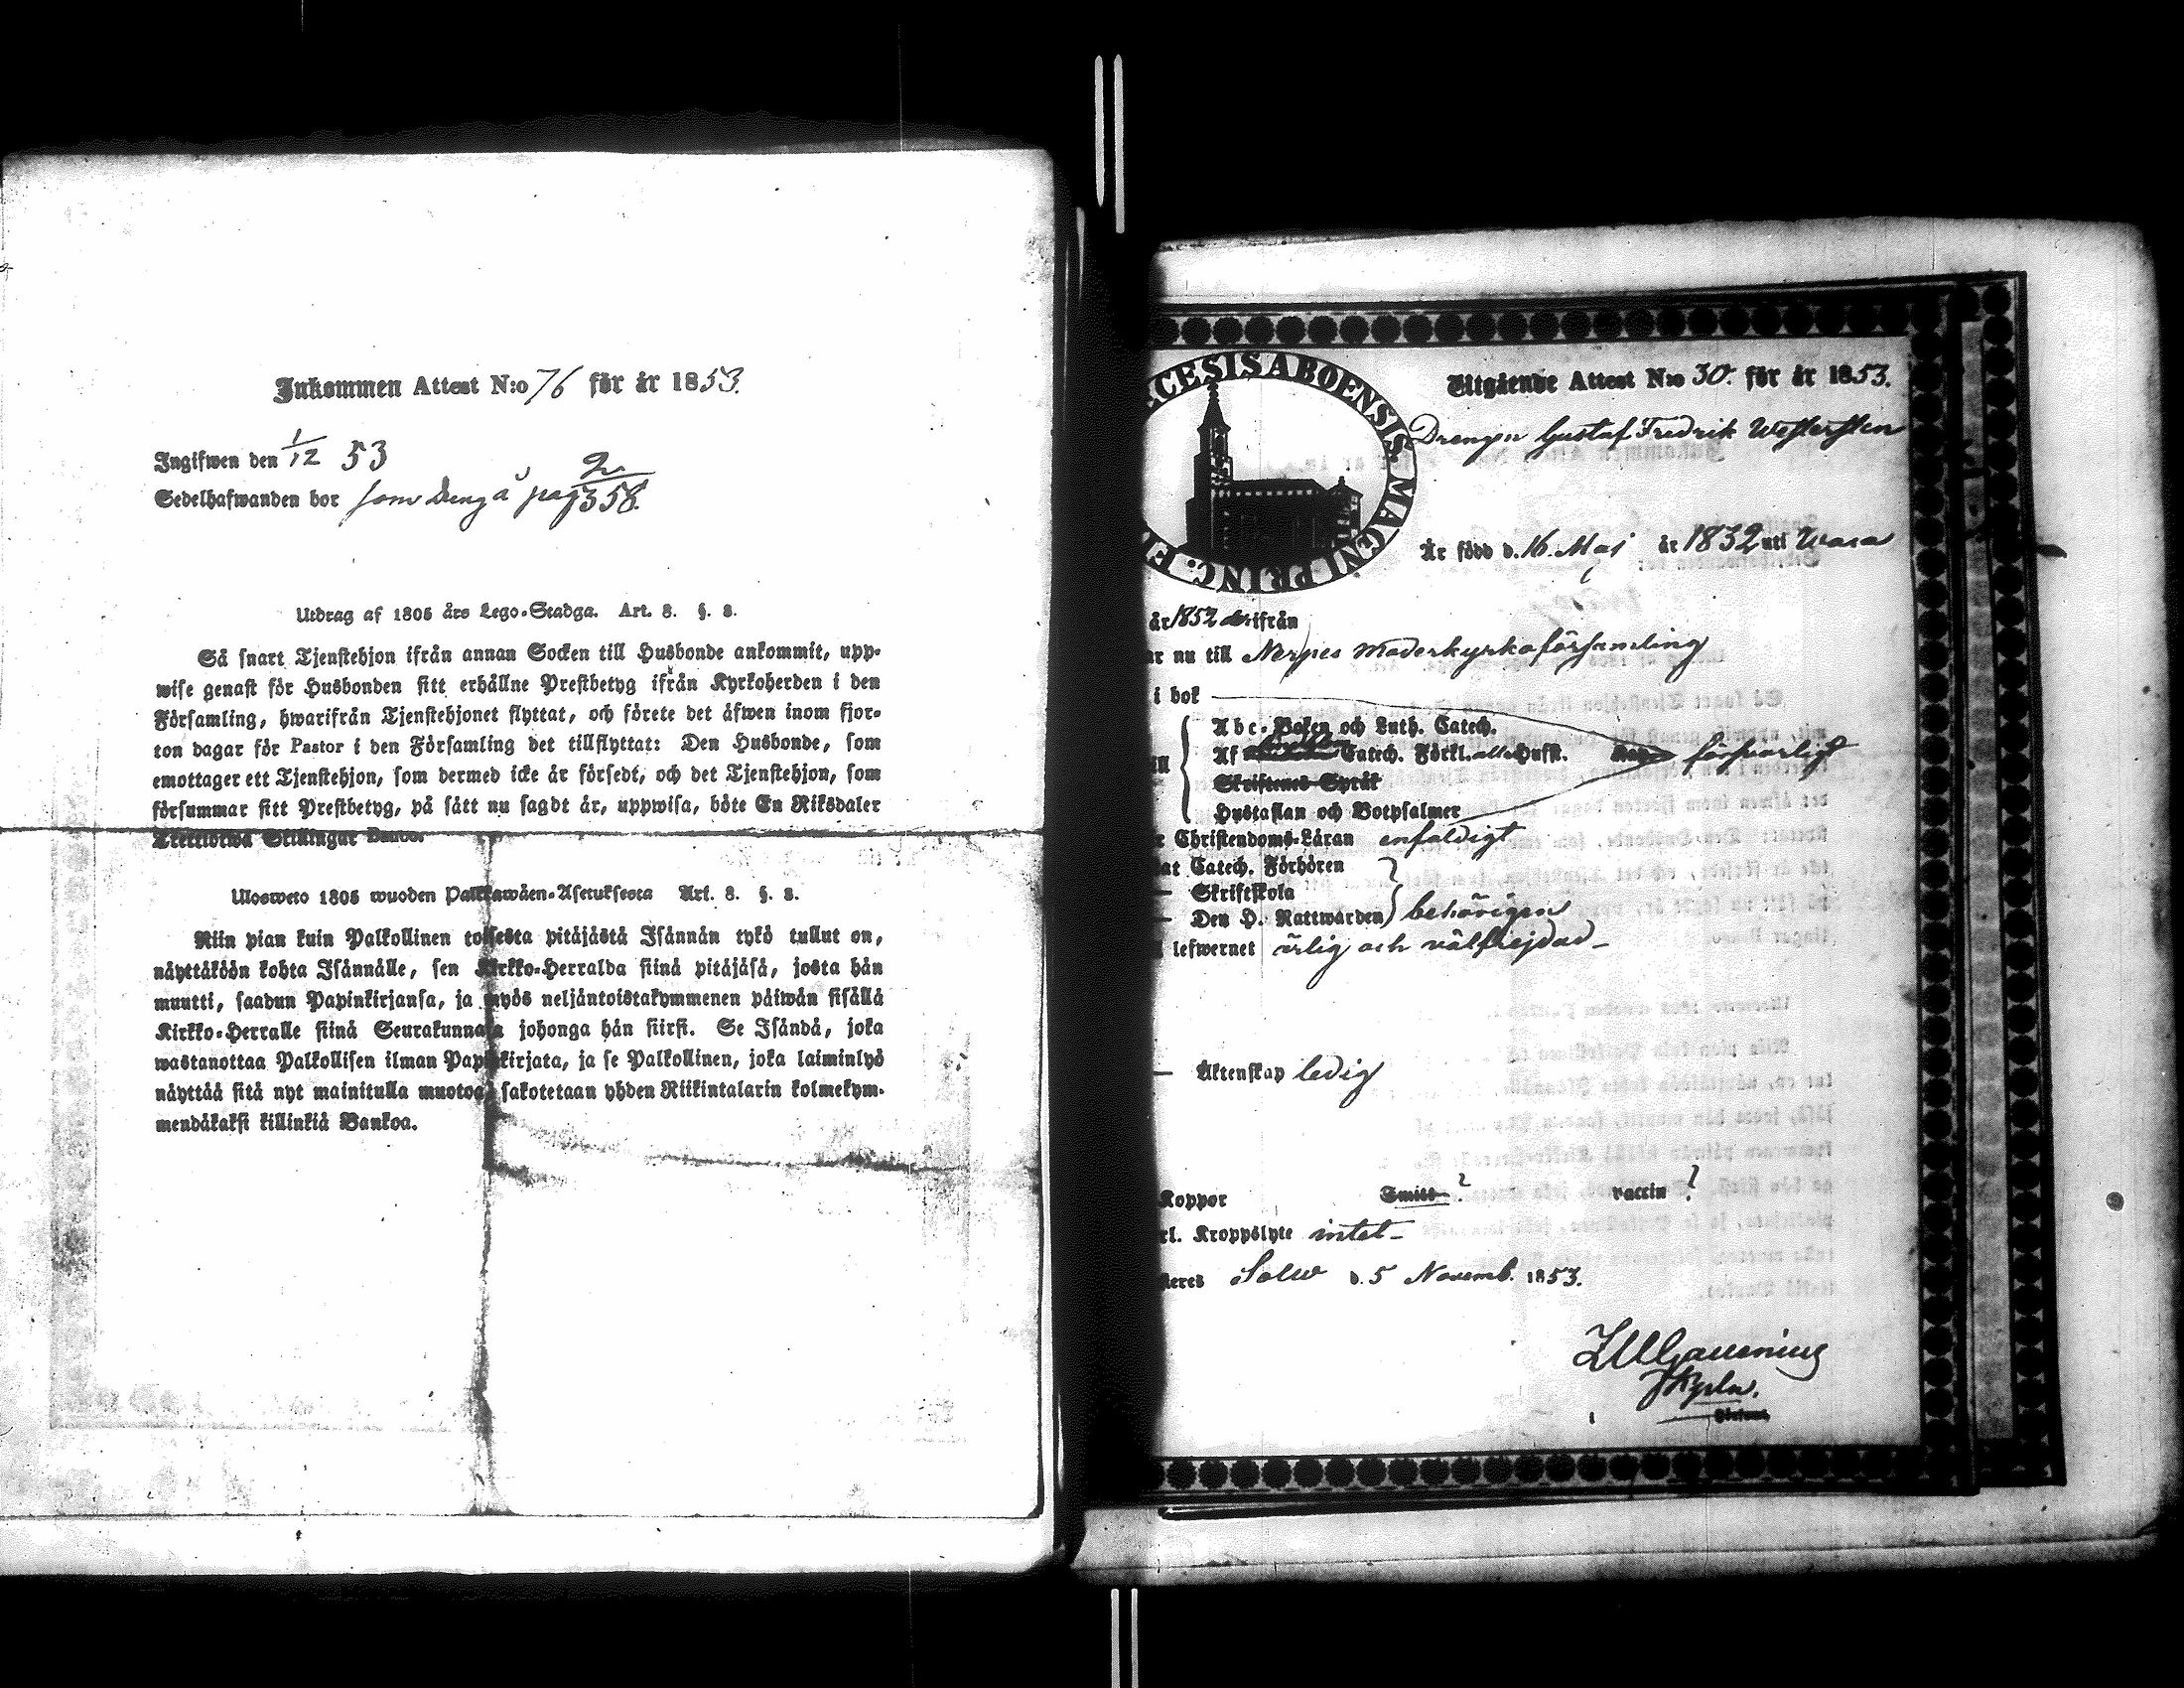 Inkommen Attest N:o 76 för år 1853.
Ingifwen den 1/12 53
Sedelhafwanden bor som dreng å pag 358.
Utdrag af 1805 års Lego-Stadga. Art. 8. §. 2.
Så snart Tjenstehjon ifrån annan Socken till Husbonde ankommit, upp-
wise genast för Husbonden sitt erhållne Prestbetyg ifrån Kyrkoherden i den
Församling, hwarifrån Tjenstehjonet flyttat, och förete det äfwen inom fjor-
ton dagar för Pastor i den Församling det tillflyttat: Den Husbonde, som
emottager ett Tjenstehjon, som dermed icke är försedt, och det Tjenstehjon, som
försummar sitt Prestbetyg, på sätt nu sagdt är, uppwisa, böte En Riksdaler
Trettiotwå Skillingar Banco.
Ulosweto 1805 wuoden Palkkawäen-Asetuksesta Art. 8. §. 2.
Niin pian kuin Palkollinen toisesta pitäjästä Isännän tykö tullut on,
näyttäköön kohta Isännälle, sen Kirkko-Herralda siinä pitäjäsä, josta hän
muutti, saadun Papinkirjansa, ja myös neljäntoistakymmenen päiwän sisällä
Kirkko-Herralle siinä Seurakunnasa johonga hän siirsi. Se Isändä, joka
wastanottaa Palkollisen ilman Papinkirjata, ja se Palkollinen, joka laiminlyö
näyttää sitä nyt mainitulla muotoa, sakotetaan yhden Riikintalarin kolmekym-
mendäkaksi killinkiä Bankoa.
CESIS ABOENSIS MAGNI PRINC. F
Utgående Attest N:o 30. för år 1853.
Drengen Gustaf Fredrik Westersten
Är född d. 16. Maj år 1832 uti Wasa
år 1852 ifrån
ar nu till Nerpes Moderkyrkoförsamling
i bok
Abc-Boken och Luth. Catech.
Af Catech. Förkl. alla Hufst. försvarligt
Skriftenes Språk
Hustaflan och Botpsalmer
Christendoms-Läran enfaldigt
at Catech. Förhören
— Skriftskola
— Den H. Nattwarden behörigen
lefwernet ärlig och välfrejdad —
— Äktenskap ledig
Koppor Smitt ? vaccin ?
rl. Kroppslyte intet —
teres Solw d. 5 Novemb. 1853.